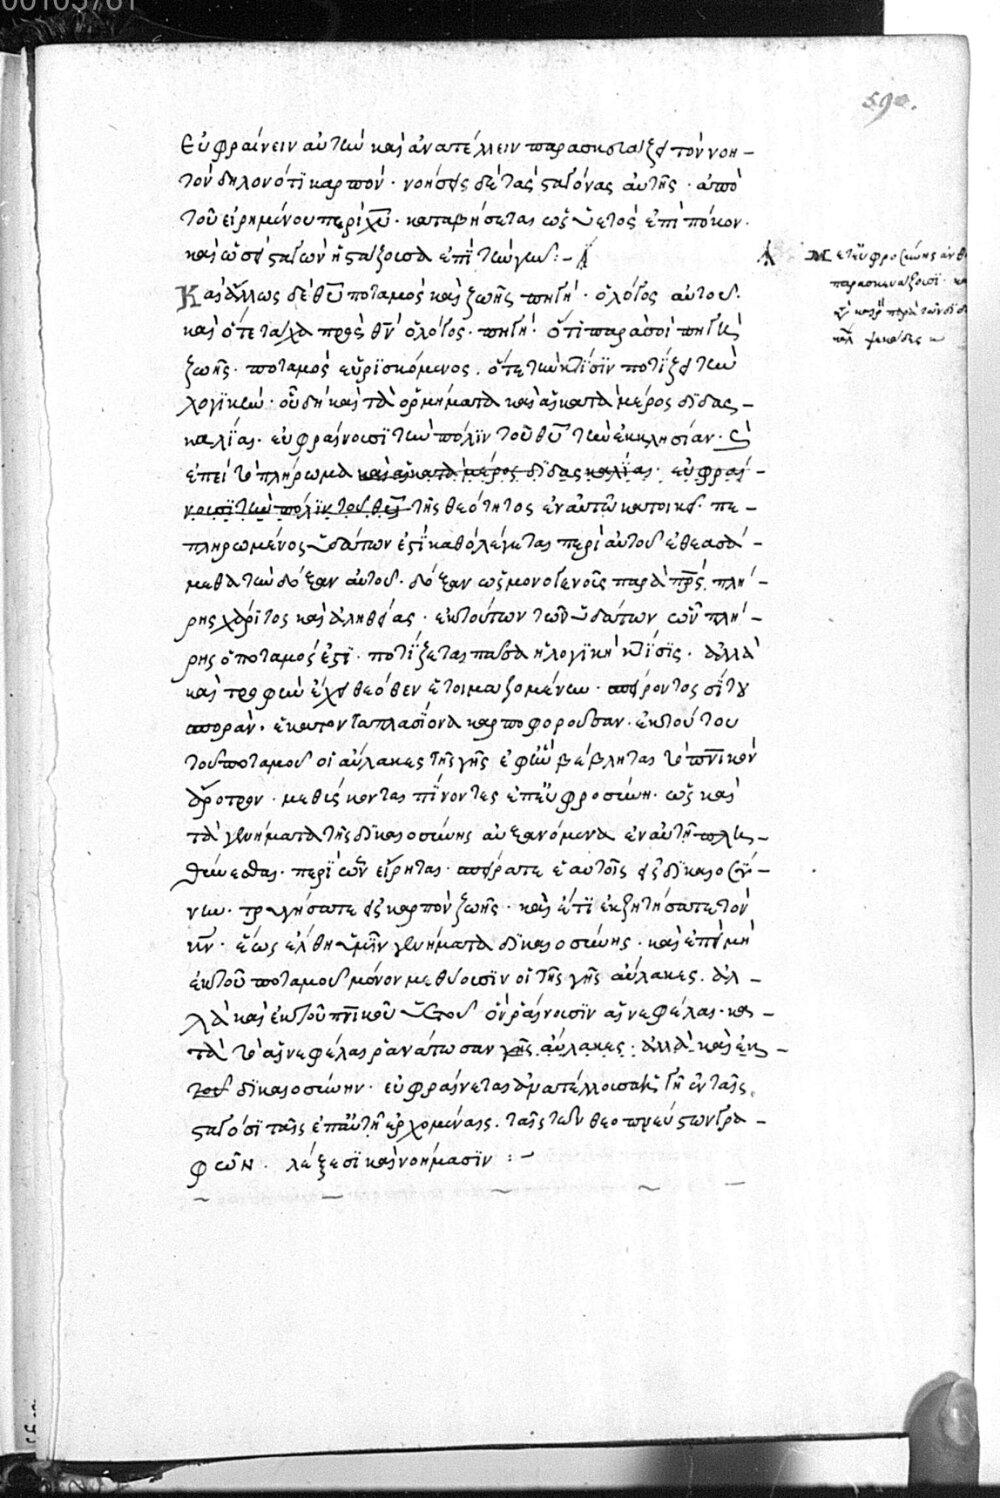 00103761
590.
εὐφραίνειν αὐτὴν καὶ ἀνατέλλειν παρασκευάζει τὸν νοη-
τὸν δηλονότι καρπόν· νοήσεις δὲ τὰς σταγόνας αὐτῆς· ἀπὸ
τοῦ εἰρημένου περὶ χυ· καταβήσεται ὡς ὑετὸς ἐπὶ πόκον·
καὶ ὡσεὶ σταγὼν ἡ στάζουσα ἐπὶ τὴν γῆν:-
Καὶ ἄλλως δὲ θυ ποταμὸς καὶ ζωῆς πηγὴ· ὁ λόγος αὐτοῦ·
καὶ ὅτε τάχα πρὸς θν ὁ λόγος· πηγή· ὅτι παρὰ σοὶ πηγὴ
ζωῆς· ποταμὸς εὑρισκόμενος· ὅτε τὴν κτίσιν ποτίζει τὴν
λογικήν· οὗ δὴ καὶ τὰ ὁρμήματα καὶ αἱ κατὰ μέρος διδας-
καλίαι· εὐφραίνουσι τὴν πόλιν τοῦ θυ τὴν ἐκκλησίαν·
ἐπεὶ τὸ πλήρωμα καὶ αἱ κατὰ μέρος διδασκαλίαι· εὐφραί-
νουσι τὴν πόλιν τοῦ θυ τῆς θεότητος ἐν αὐτῷ κατοικεῖ· πε-
πληρωμένος ὑδάτων ἐστὶ καθὸ λέγεται περὶ αὐτοῦ ἐθεασά-
μεθα τὴν δόξαν αὐτοῦ· δόξαν ὡς μονογενοῦς παρὰ πρς πλή-
ρης χάριτος καὶ ἀληθείας· ἐκ τούτων τῶν ὑδάτων ὧν πλή-
ρης ὁ ποταμός ἐστι· ποτίζεται πᾶσα ἡ λογικὴ κτίσις· ἀλλὰ
καὶ τροφὴν ἔχει θεόθεν ἑτοιμαζομένην· σπείροντος σίτου
σποράν· ἑκατονταπλασίονα καρποφοροῦσαν· ἐκ τούτου
τοῦ ποταμοῦ οἱ αὔλακες τῆς γῆς ἐφ' ὧν βέβληται τὸ πνικὸν
ἄροτρον· μεθύσκονται πίνοντες ἐπ' εὐφροσύνη· ὡς καὶ
τὰ γεννήματα τῆς δικαιοσύνης αὐξανόμενα ἐν αὐτῇ πλη-
θύνεσθαι· περὶ ὧν εἴρηται· σπείρατε ἑαυτοῖς εἰς δικαιοσύ-
νην· τρυγήσατε εἰς καρπὸν ζωῆς· καὶ ἔτι ἐκζητήσατε τὸν
κν· ἕως ἔλθη ὑμῖν γεννήματα δικαιοσύνης· καὶ ἐπεὶ μὴ
ἐκ τοῦ ποταμοῦ μόνον μεθύουσιν οἱ τῆς γῆς αὔλακες· ἀλ-
λὰ καὶ ἐκ τοῦ πνικοῦ ὑετοῦ ὃν ῥαίνουσιν αἱ νεφέλαι· κα-
τὰ τὸ αἱ νεφέλαι ῥανάτωσαν γῆς αὔλακες· ἀλλὰ καὶ ἐκ
τοῦ δικαιοσύνην· εὐφραίνεται ἀνατέλλουσα ἡ γῆ ἐν ταῖς
σταγόσι ταῖς ἐπ' αὐτὴ ἐρχομέναις· ταῖς τῶν θεοπνεύστων γρα-
φῶν· λέξεσι καὶ νοήμασιν:-
Μετ' εὐφροσύνης
παρασκευάζουσι·
ψεκάδες